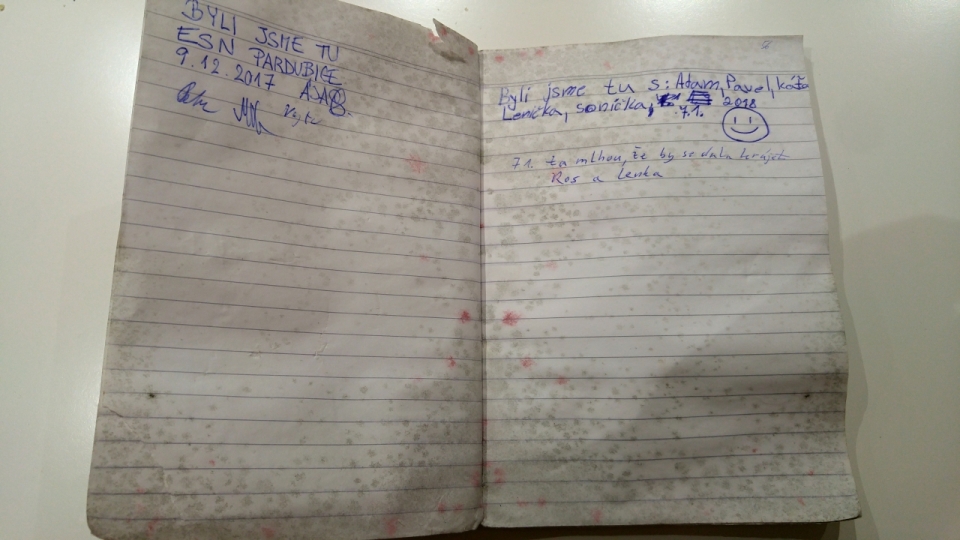 BYLI JSME TU
ESN PARDUBICE
9.12.2017
Byli jsme tu s: Adam, Pavel, Káťa
Lenička, sonička,
7.1. 2018
7.1. za mlhou, že by se dala krájet
Ros a Lenka